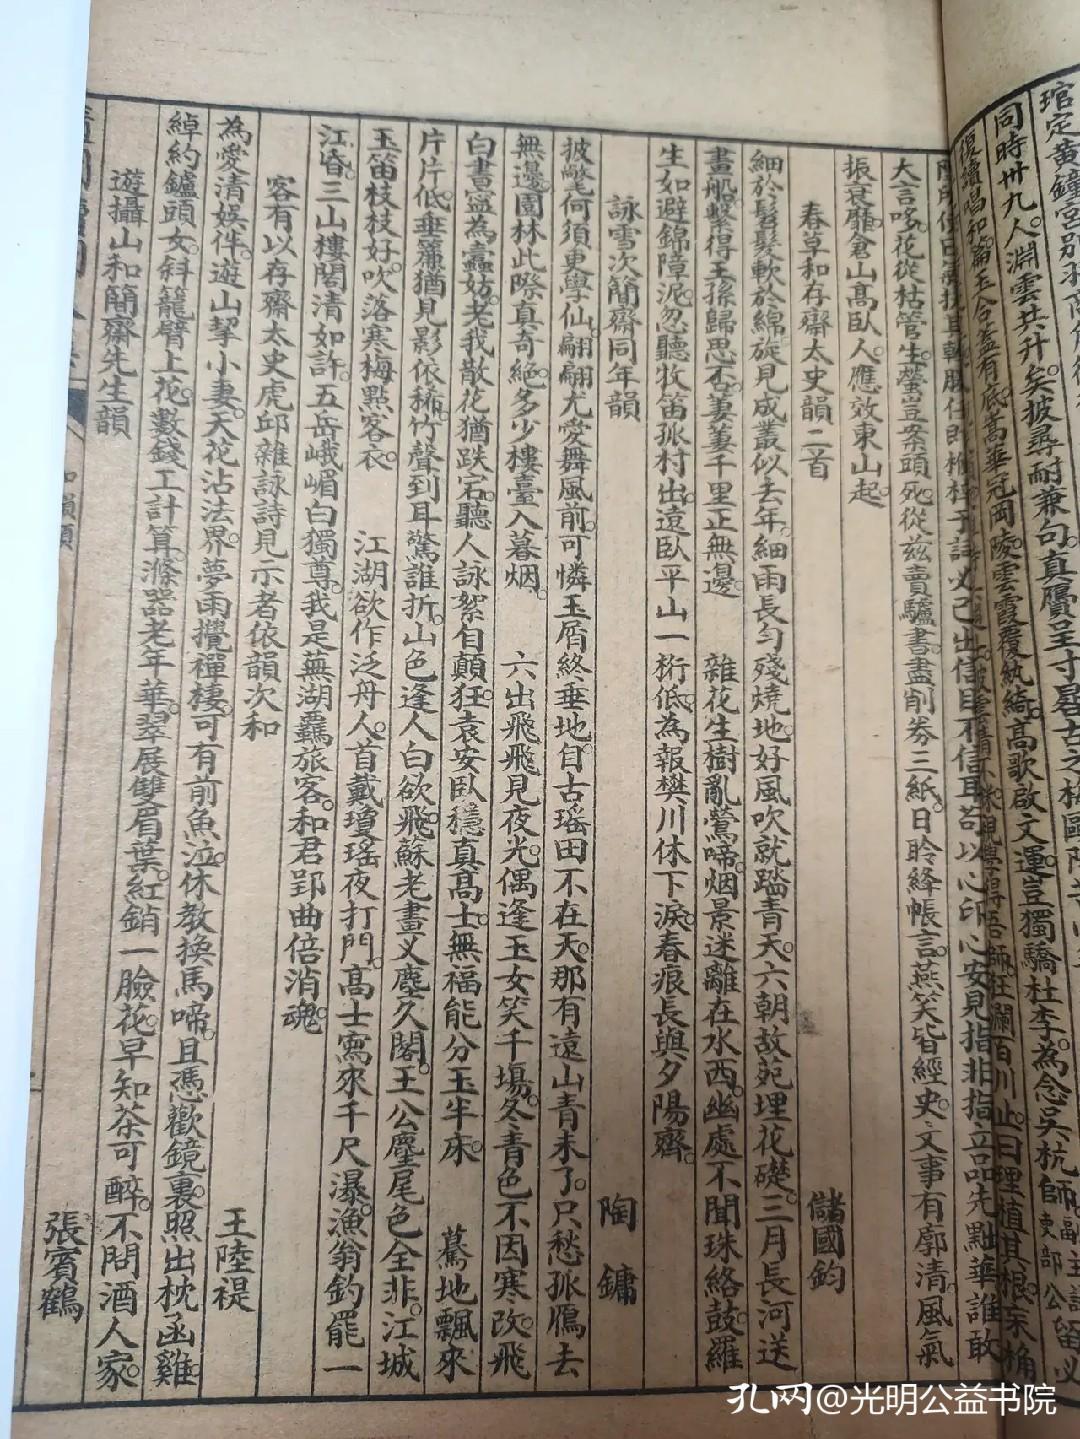 琯定黃鐘宮
同時卅九人淵雲共升矣披尋耐兼句真贗呈寸晷
復續唱和篇玉合蓋有底嵩華冠岡陵雲霞覆紈綺高歌啟文運豈獨驕杜李為念吳杭師
大言哆花從枯管生螢豈案頭死從兹賣驢書盡削券三紙日聆絳帳言燕笑皆經史文事有廓清風氣
振衰靡倉山高臥人應效東山起
春草和存齋太史韻二首 儲國鈞
細於髩髮軟於綿旋見成叢似去年細雨長勻殘燒地好風吹就踏青天六朝故苑埋花礎三月長河送
畫船繫得王孫歸思否萋萋千里正無邊 雜花生樹亂鶯啼烟景迷離在水西幽處不聞珠絡鼓羅
生如避錦障泥忽聽牧笛孤村出遠臥平山一桁低為報樊川休下淚春痕長與夕陽齊
詠雪次簡齋同年韻 陶鏞
披氅何須更學仙翩翩尤愛舞風前可憐玉屑終垂地自古瑤田不在天那有遠山青未了只愁孤鴈去
無邊園林此際真奇絕多少樓臺入暮烟 六出飛飛見夜光偶逢玉女笑千塲冬青色不因寒改飛
白書寧為蠹妨老我散花猶跌宕聽人詠絮自顛狂袁安臥穩真高士無福能分玉半床 驀地飄來
片片低垂簾猶見影依稀竹聲到耳驚誰折山色逢人白欲飛蘇老畫叉塵久閣王公麈尾色全非江城
玉笛枝枝好吹落寒梅點客衣 江湖欲作泛舟人首戴瓊瑤夜打門高士寫來千尺瀑漁翁釣罷一
江昏三山樓閣清如許五岳峨嵋白獨尊我是蕪湖羈旅客和君郢曲倍消魂
客有以存齋太史虎邱雜詠詩見示者依韻次和 王陸禔
為愛清娱件遊山挈小妻天花沾法界夢雨攪禪棲可有前魚泣休教換馬啼且憑歡鏡裏照出枕函雞
綽約鑪頭女斜籠臂上花數錢工計算滌器老年華翠展雙眉葉紅銷一臉花早知茶可醉不問酒人家
遊攝山和簡齋先生韻 張賓鶴
孔网@光明公益书院